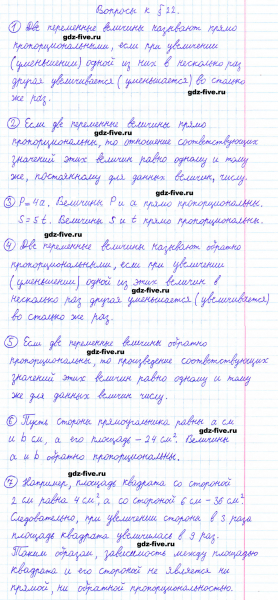 Вопросы к § 22.
① Две переменные величины называют прямо
gdz-five.ru
пропорциональными, если при увеличении
(уменьшении) одной из них в несколько раз
gdz-five.ru
другая увеличивается (уменьшается) во столько
же раз.
gdz-five.ru
② Если две переменные величины прямо
gdz-five.ru
пропорциональны, то отношение соответствующих
значений этих величин равно одному и тому
gdz-five.ru
же, постоянному для данных величин, числу.
gdz-five.ru
③ P=4a. Величины P и a прямо пропорциональны.
S=5t. Величины S и t прямо пропорциональны.
gdz-five.ru
④ Две переменные величины называют обратно
gdz-five.ru
пропорциональными, если при увеличении
(уменьшении) одной из этих величин в
gdz-five.ru
несколько раз другая уменьшается (увеличивается)
во столько же раз.
gdz-five.ru
⑤ Если две переменные величины обратно
gdz-five.ru
пропорциональны, то произведение соответствующих
значений этих величин равно одному и тому
gdz-five.ru
же для данных величин числу.
gdz-five.ru
⑥ Пусть стороны прямоугольника равны a см
и b см, а его площадь – 24 см². Величины
gdz-five.ru
a и b обратно пропорциональны.
gdz-five.ru
⑦ Например, площадь квадрата со стороной
2 см равна 4 см², а со стороной 6 см – 36 см².
gdz-five.ru
Следовательно, при увеличении стороны в 3 раза
площадь квадрата увеличилась в 9 раз.
gdz-five.ru
Таким образом, зависимость между площадью
gdz-five.ru
квадрата и его стороной не является ни
прямой, ни обратной пропорциональностью.
gdz-five.ru